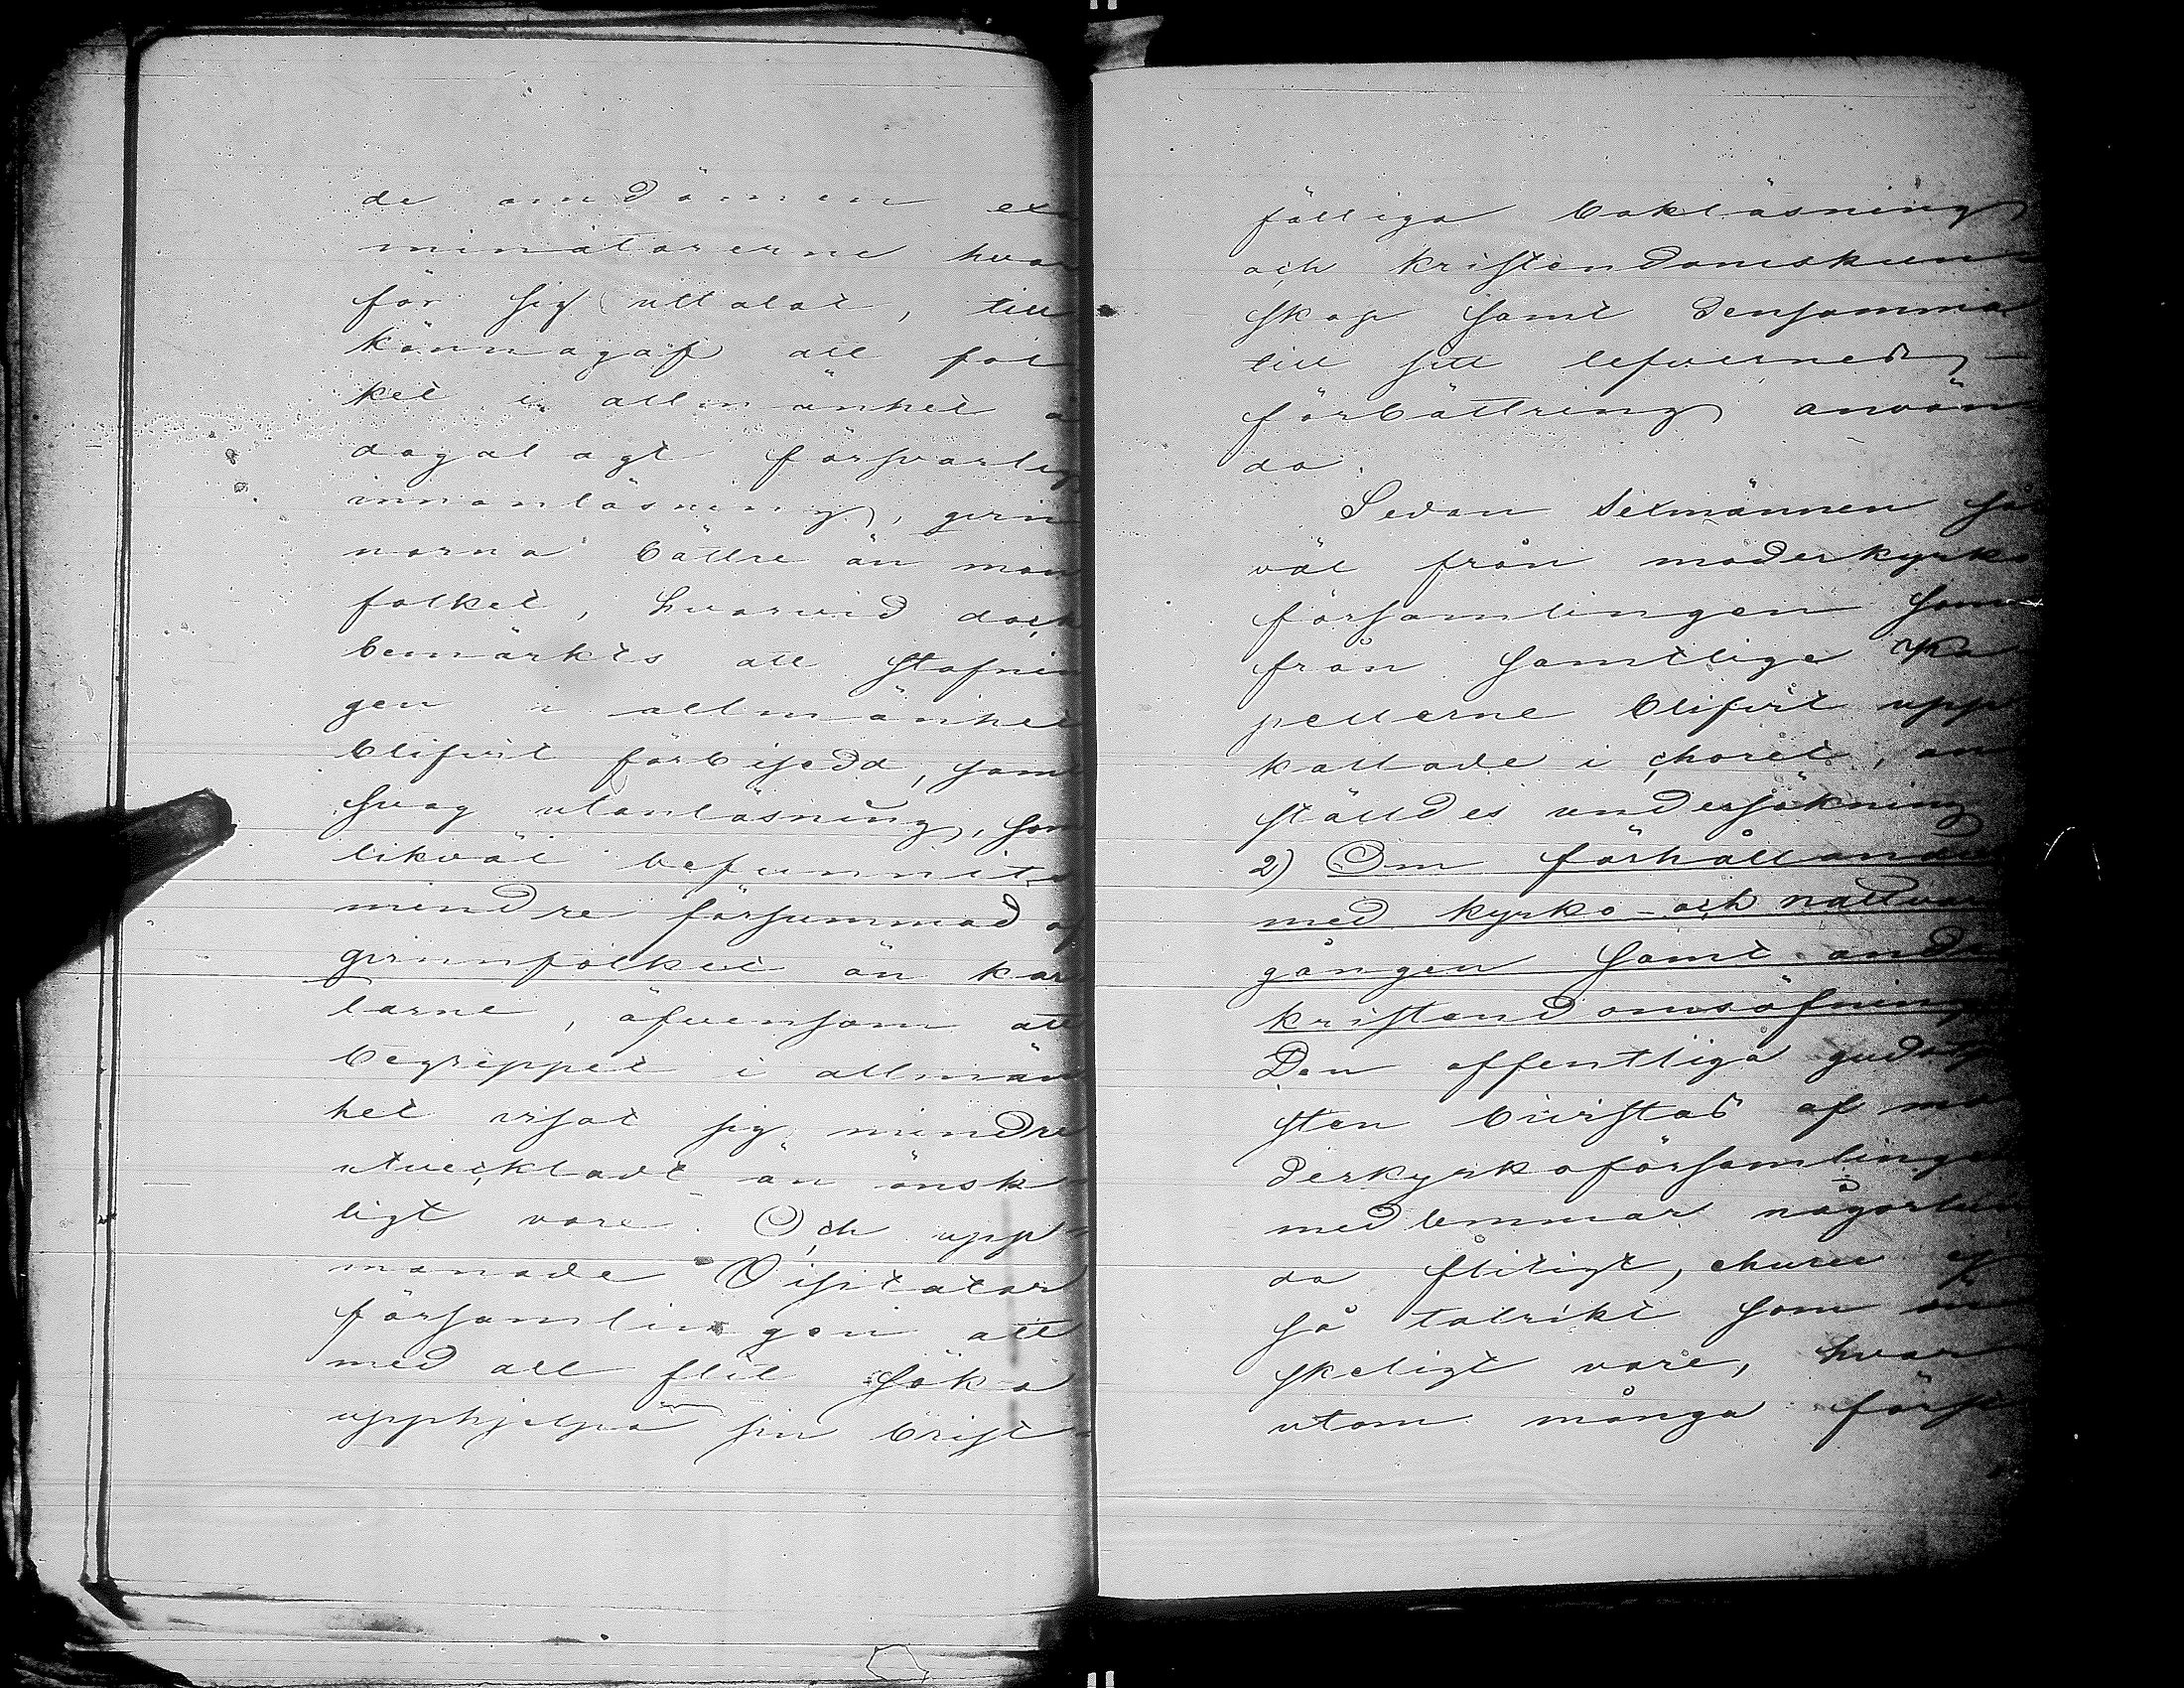 de omdömen exa
minatorerne hvar
för sig uttalat, till
kännagaf att fol
ket i allmänhet å
dagalagt försvarlig
innanläsning, qvin
norna bättre än man
folket, hvarvid dock
bemärktes att stafnin
gen i allmänhet
blifvit förbisedd, samt
svag utanläsning, som
likväl befunnits
mindre försummad af
qvinnfolket än kar
larne, äfvensom att
begreppet i allmän
het visat sig mindre
utveckladt än önsk
ligt vore. Och upp-
manade Visitator
församlingen att
med all flit söka
upphjelpa sin brist-
fälliga bokläsning
och kristendomskun
skap samt densamma
till sitt lefvernes-
förbättring använ
da.
Sedan Sexmännen så
väl från moderkyrko
församlingen som
från samtlige Ka
pellerne blifvit upp
kallade i choret, an
ställdes undersökning
2) Om förhållandet
med kyrko- och nattvard
gången samt andra
kristendomsöfningar
Den offentliga gudstjen
sten bevistas af mo
derkyrkoförsamlingens
medlemmar någorlun
da flitigt, ehuru ej
så talrikt som ön
skeligt vore, hvar
utom många försu